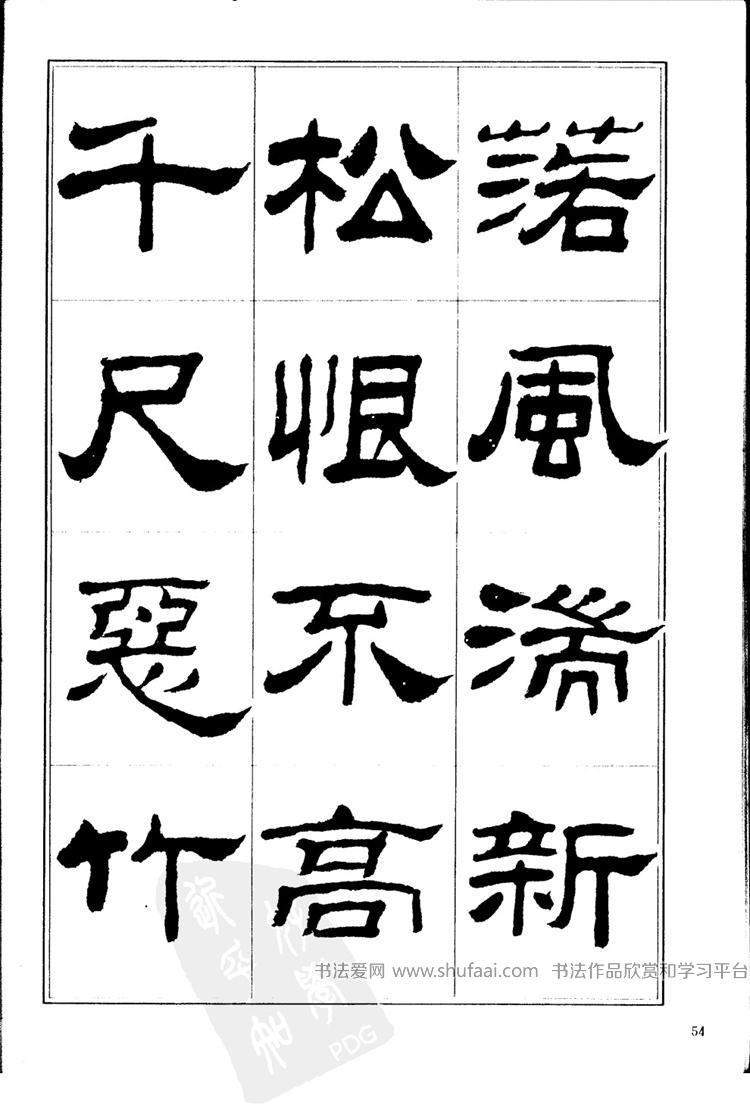 落風湍新
松恨不高
千尺惡竹
书法爱网 www.shufaai.com 书法作品欣赏和学习平台
PDG
54